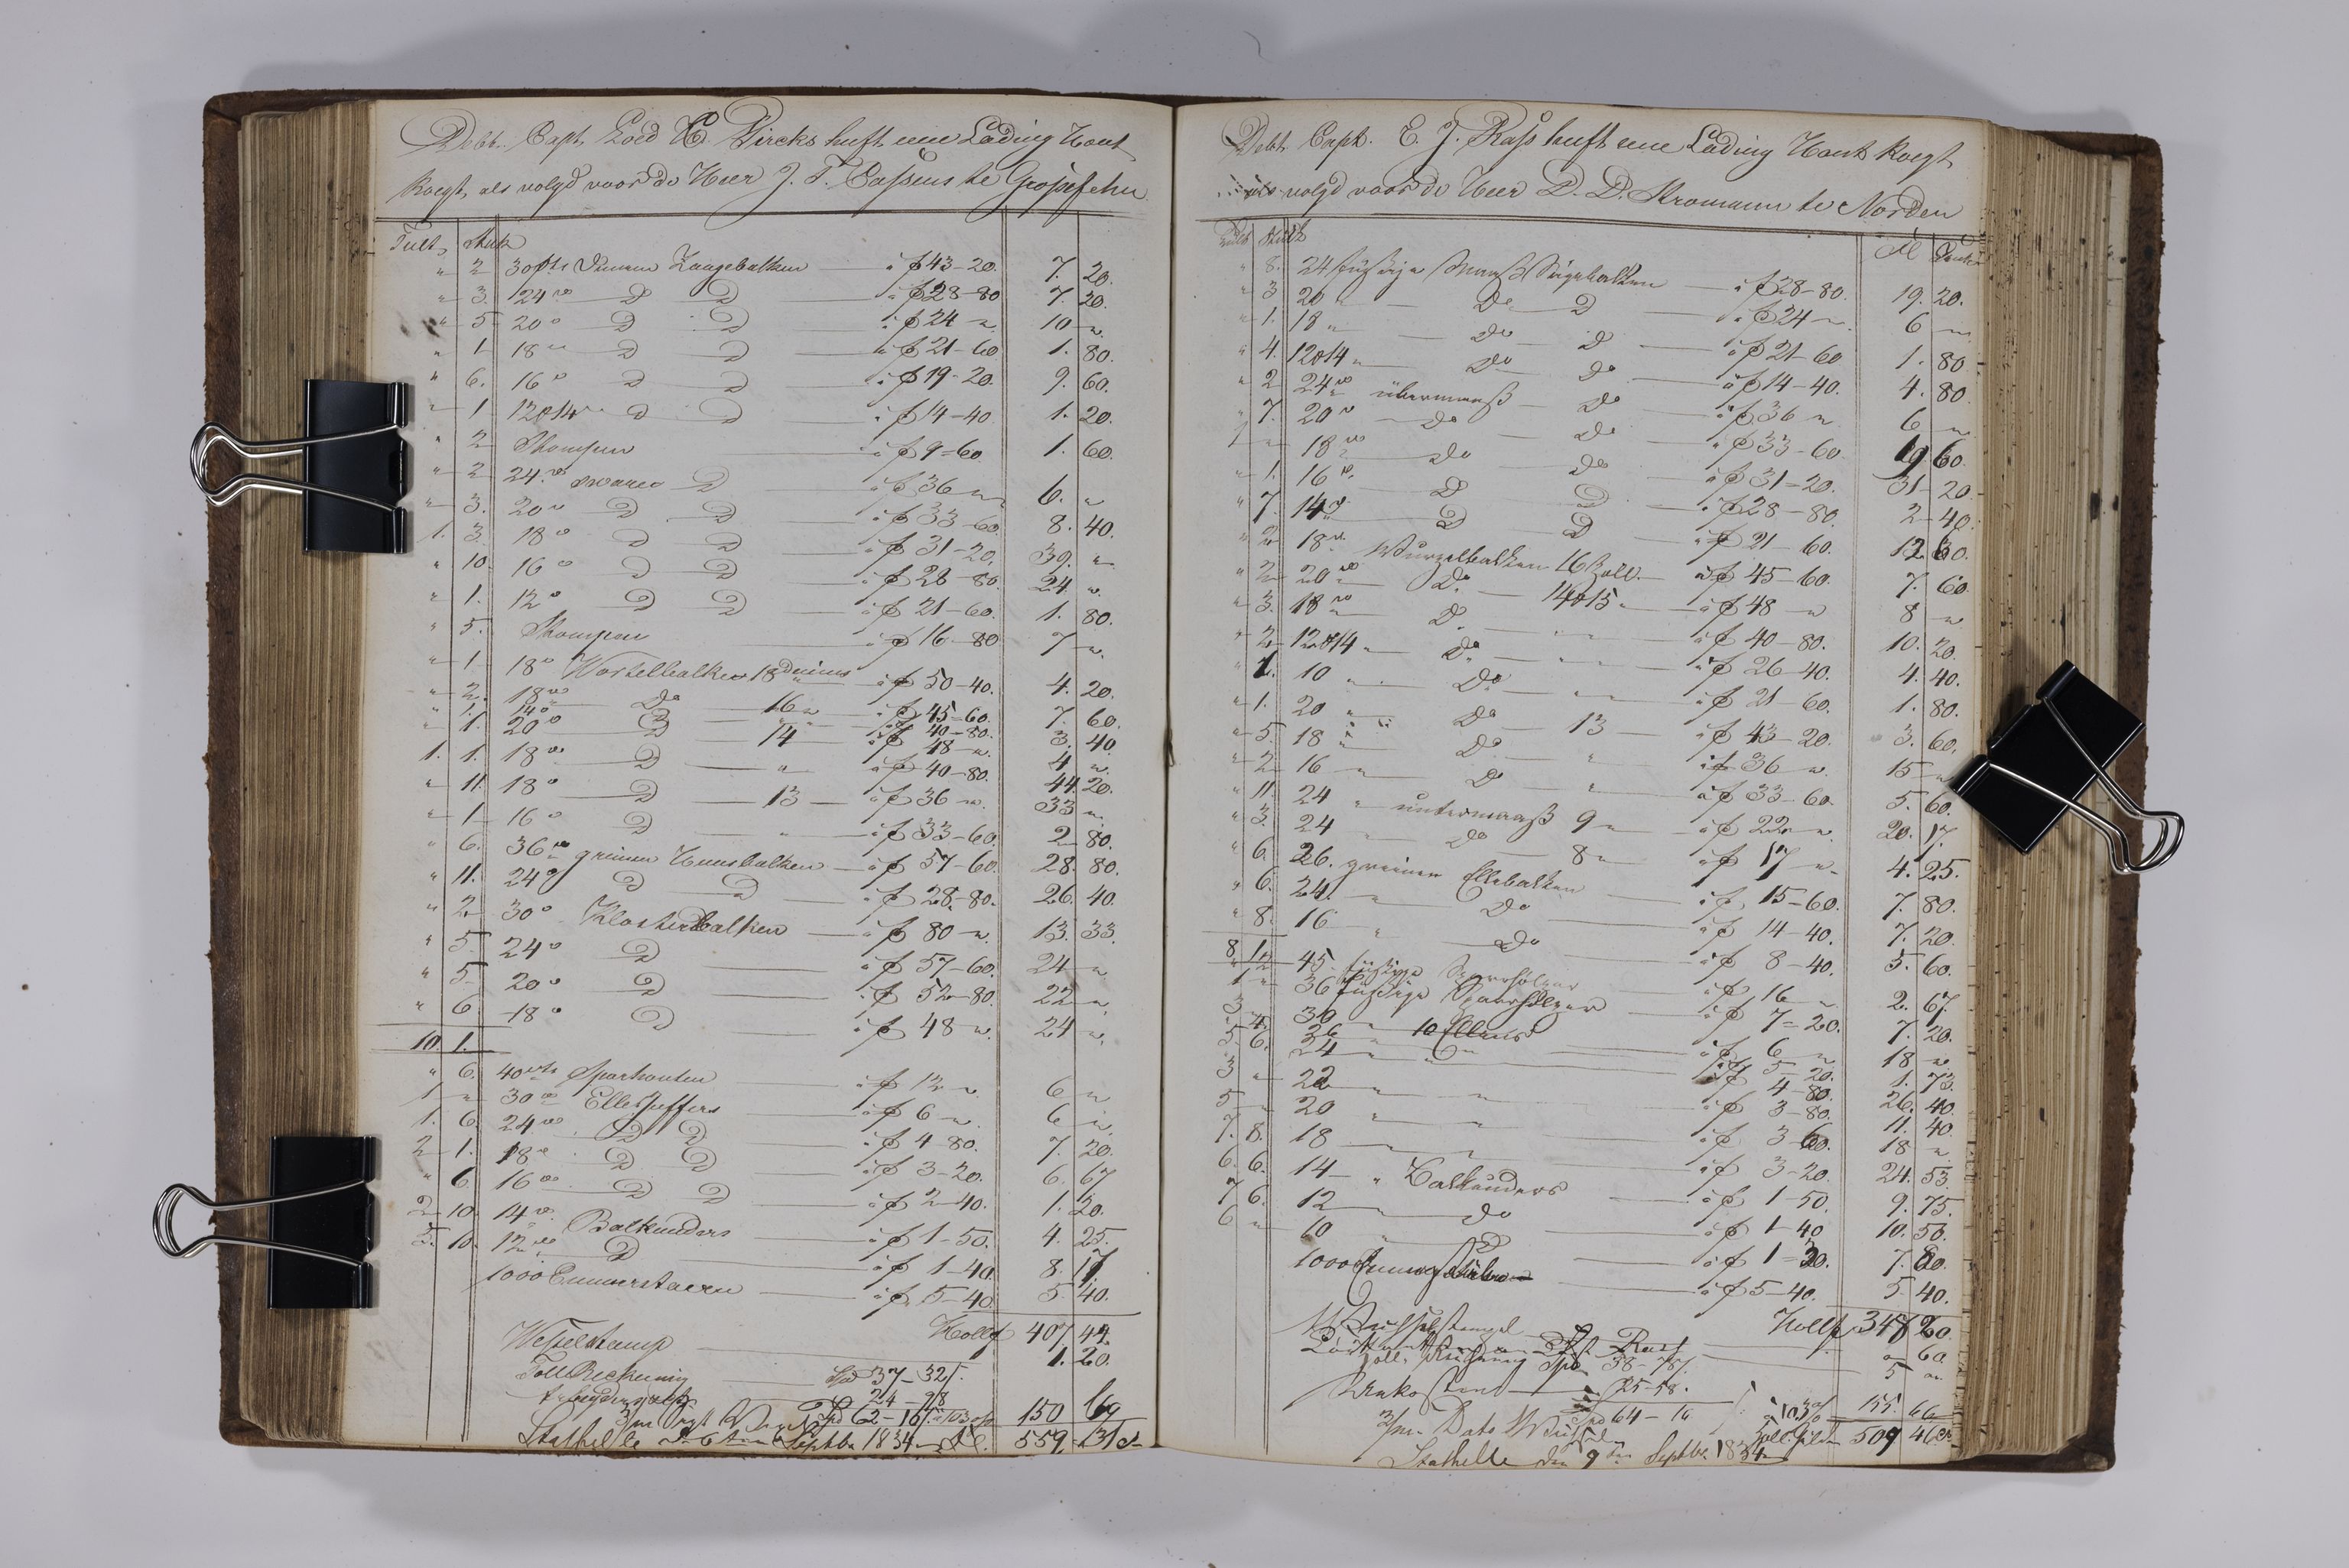 Debt. Capt. Loed H. Dircks huft eene Lading Hout
koegt, als volgd voor de Heer J. T. Cassens te Grossefehn
Tult, Stuk
" 2 30 vts Zaagebalken — a f 43-20. 7. 20.
" 3. 24 " Do Do — a f 28-80 7. 20.
" 5 20 " Do Do — a f 24 " 10 "
" 1 18 " Do Do — a f 21-60 1. 80.
" 6. 16 " Do Do — a f 19-20. 9. 60.
" 1 12 a 14 " Do Do — a f 14-40 1. 20.
" 2 Stompen — a f 9-60 1. 60.
" 2 24. " sware Do — a f 36 " 6. "
" 3. 20 " Do Do — a f 33-60. 8. 40.
1. 3. 18 " Do Do — a f 31-20. 39. "
" 10. 16 " Do Do — a f 28-80. 24. "
" 1. 12 " Do Do — a f 21-60. 1. 80.
" 5. Stompen — a f 16-80 7 "
" 1 18 " Wortelbalken 18 duims a f 50-40. 4. 20.
" 2. 18 " Do 16 " a f 45-60. 7. 60.
" 1. 14 " a f 40-80. 3. 40.
" 1. 20 " Do 14 a f 48 " 4 "
1. 1. 18 " Do " a f 40-80. 44. 20.
" 11. 18 " Do — 13 — a f 36 " 33 "
" 1 16 " Do " a f 33-60. 2 80.
" 6. 36 " greinen Huusbalken — a f 57-60. 28. 80.
" 11. 24 " Do Do — a f 28-80. 26. 40.
" 2. 30 " Klosterbalken — a f 80 " 13. 33.
" 5 24 " Do — a f 57-60. 24 "
" 5 20 " Do — a f 52-80. 22 "
" 6 18 " Do — a f 48 " 24 "
10. 1.
" 6. 40 vts Sparhouten — a f 12 " 6 "
1 " 30 " Elleseffers — a f 6 " 6 "
1. 6. 24 " Do Do — a f 4 80. 7. 20.
2 1. 18 " Do Do — a f 3-20. 6. 67
" 6 16 " Do Do — a f 2-40. 1. 20.
2 10. 14 " Balkunders — a f 1-50. 4. 25.
5. 10. 12 " Do — a f 1-40. 8. 17
1000 Emmerstaven — a f 5-40. 5. 40.
Hollf 407 42.
Wesselstamp — 1. 20.
Toll Reckening — Spd 37-32.
24-98
Spd 62-16 150 69
Stathelle d. 6 ten Septbr 1834 559 31
Debt. Capt. E. J. Rass huft eene Lading Hout koegt
als volgd voor de Heer D. D. Stromann te Norden
Tult Stük
" 8. 24 füssige Maass Sägebalken — a f 28-80. 19. 20.
" 3 20 " Do Do — a f 24 " 6 "
" 1. 18 " Do Do — a f 21-60 1. 80
" 4. 12 a 14 " Do Do — a f 14-40. 4. 80.
" 2 24 " übermaass — Do — a f 36 " 6 "
" 7. 20 " Do — Do — a f 33-60 19 60.
1 " 18 " Do Do — a f 31-20. 31-20.
" 1. 16 " Do Do — a f 28-80. 2-40.
" 7. 14 " Do Do — a f 21-60. 12 60.
" 2 18 " Wurzelbalken 16 Zoll. — a f 45-60. 7. 60.
" 2 20 " Do — 14 a 15 " a f 48 " 8 "
" 3. 18 " Do — " a f 40-80. 10. 20.
" 2 12 a 14 " Do — " a f 26-40. 4. 40.
" 1. 10 " Do " a f 21-60. 1. 80.
" 1. 20 " Do 13 — a f 43-20. 3. 60.
" 5 18 " Do " a f 36 " 15 "
" 2 16 " Do " a f 33-60. 5. 60.
" 11. 24 " untermaass 9 " a f 22 " 20. 17.
" 3. 24 Do 8 " a f 17 " 4. 25.
" 6. 26. greinen Ellebalken a f 15-60. 7. 80.
" 6. 24. Do a f 14-40. 7. 20.
" 8. 16 " Do — a f 8-40. 5. 60.
8 1.
" 2 45 füssige Sparrhölzer a f 16 " 2. 67.
1 " 36 füssige Sparrhölzer — a f 7-20. 7. 20.
3 " 30 a f 6 " 18 "
" 4. 26 " 10 Ellens a f 5-20. 1. 73.
5 6. 24 " a f 4-80. 26. 40.
3 " 22 " a f 3-80. 11. 40.
5 " 20 " a f 3-60. 18 "
7. 8. 18 " a f 3-20. 24. 53.
6. 6. 14 " Balkunders — a f 1-50. 9. 75.
7 6. 12 Do a f 1-40 10. 50.
6 " 10 Do — a f 1-30. 7. 80.
1000 — a f 5-40. 5. 40.
Hollf 348 20.
" 60
Zoll Spd 38-78. 5 "
Unkosten — 25-58.
Spd 64-16 155. 66
3/m. Dato Holl. Gulden 509 46
Stathelle den 9 ten Septbr. 1834